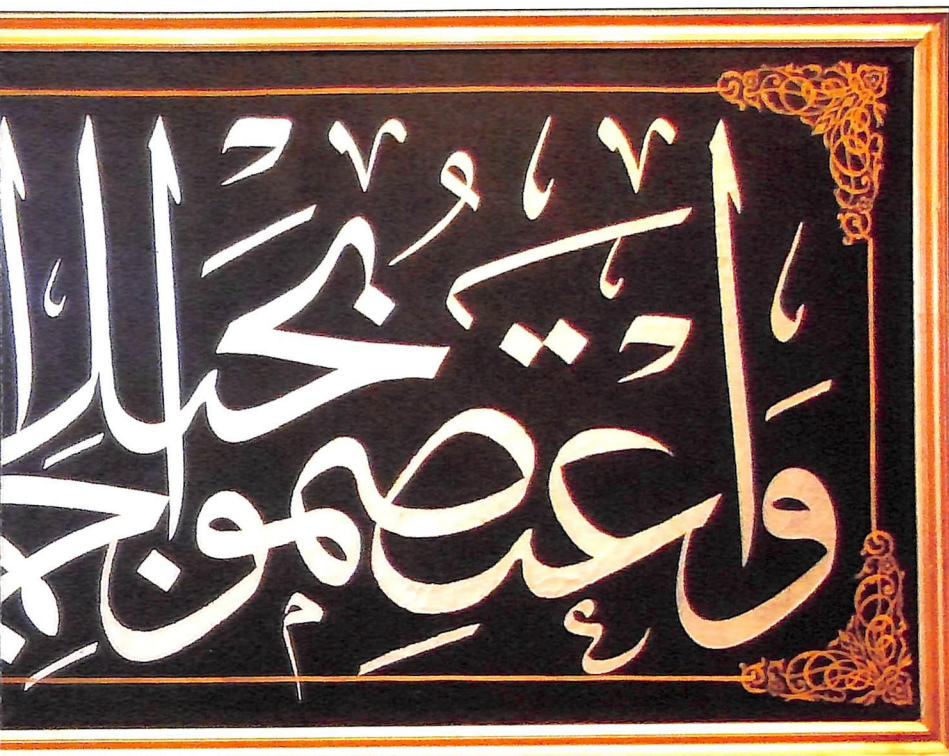 وَاعْتَصِمُوا بِحَبْلِ اللهِ جَمِيعًا